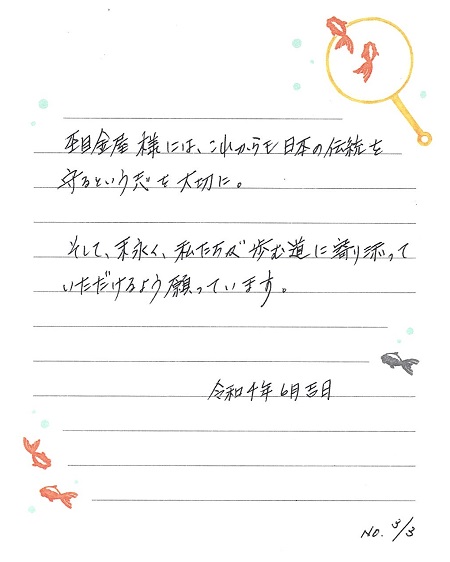 玉目金屋様には、これからも日本の伝統を
守るという志を大切に。
そして、末永く、私たちが歩む道に寄り添って
いただけるよう願っています。
令和4年6月吉日
NO. 3/3